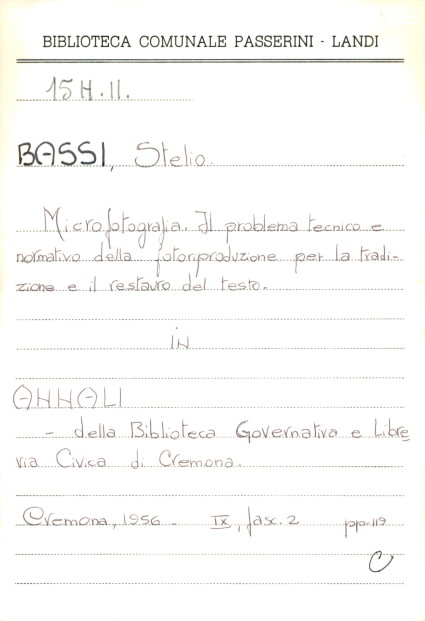 BIBLIOTECA COMUNALE PASSERINI - LANDI
15 H. II.
BASSI, Stelio.
Microfotografia. Il problema tecnico e
normativo della fotoriproduzione per la tradi-
zione e il restauro del testo.
in
ANNALI
- della Biblioteca Governativa e Libre
ria Civica di Cremona.
Cremona, 1956 - IX, fasc. 2 pp. 119
C